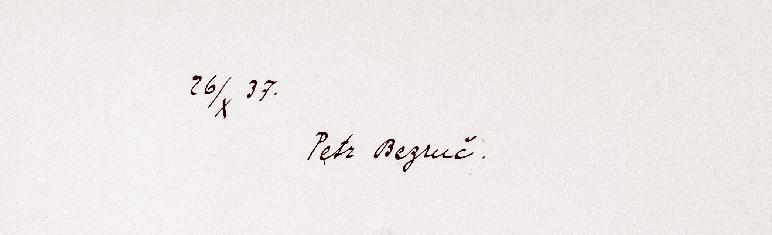 26/X 37.
Petr Bezruč.